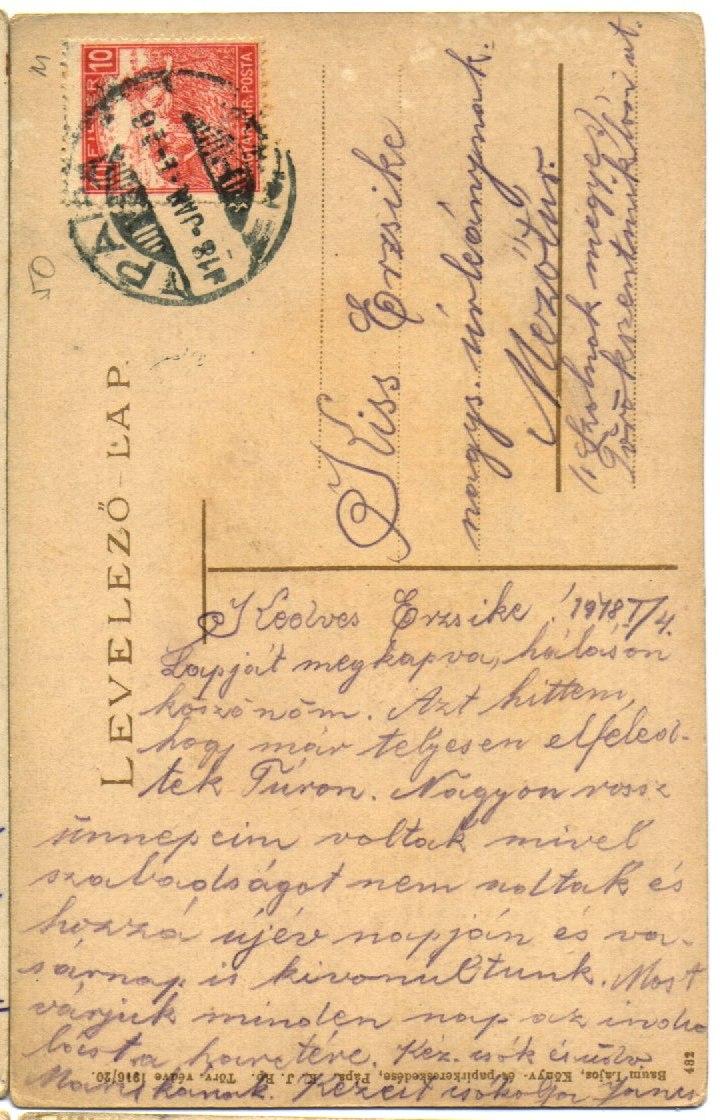 10
10
FILLÉR
MAGYAR KIR. POSTA
PÁPA
918 JAN
50
LEVELEZŐ-LAP.
Kiss Erzsike
nagys. úrleánynak.
Mezőtúr.
"Szolnok megye"
út.
Kedves Erzsike! 1918 I/4.
Lapját megkapva, hálásan
köszönöm. Azt hittem,
hogy már teljesen elfeled-
tek Túron. Nagyon rossz
ünnepeim voltak mivel
szabadságot nem adtak és
hozzá újév napján és va-
sárnap is kivonultunk. Most
várjuk minden nap az indu
lást a harctérre. Kéz. csók és üdv
Mariskának. Kezeit csókolja János
Baum Lajos, Könyv- és papirkereskedése, Pápa. K. J. Bp. Törv. védve 1916/20.
482